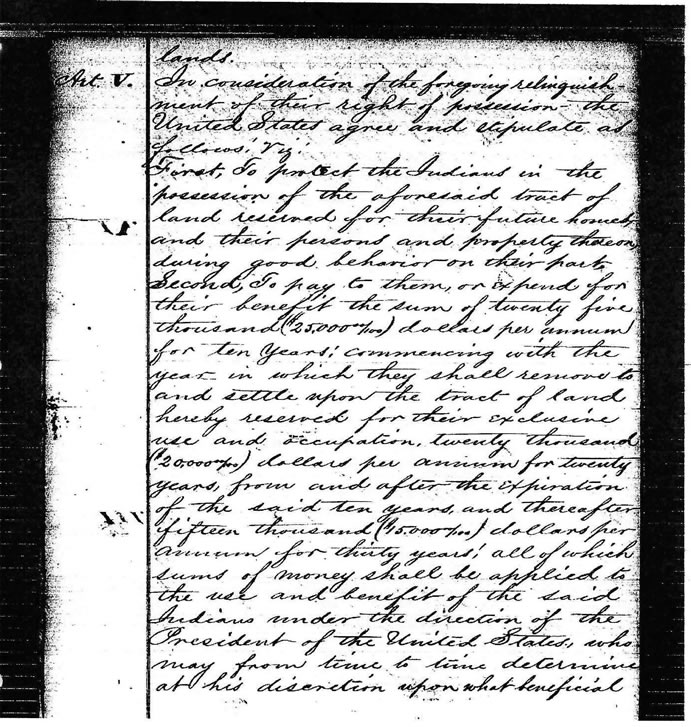 lands.
Art. V. In consideration of the foregoing relinquish-
ment of their right of possession - the
United States agree and stipulate as
follows: Viz:
First, To protect the Indians in the
possession of the aforesaid tract of
land reserved for their future homes,
and their persons and property thereon,
during good behavior on their part.
Second, To pay to them, or expend for
their benefit the sum of twenty five
thousand ($25,000 00/100) dollars per annum
for ten years; commencing with the
year in which they shall remove to
and settle upon the tract of land
hereby reserved for their exclusive
use and occupation, twenty thousand
($20,000 00/100) dollars per annum for twenty
years, from and after the expiration
of the said ten years, and thereafter
fifteen thousand ($15,000 00/100) dollars per
annum for thirty years; all of which
sums of money shall be applied to
the use and benefit of the said
Indians under the direction of the
President of the United States, who
may from time to time determine
at his discretion upon what beneficial